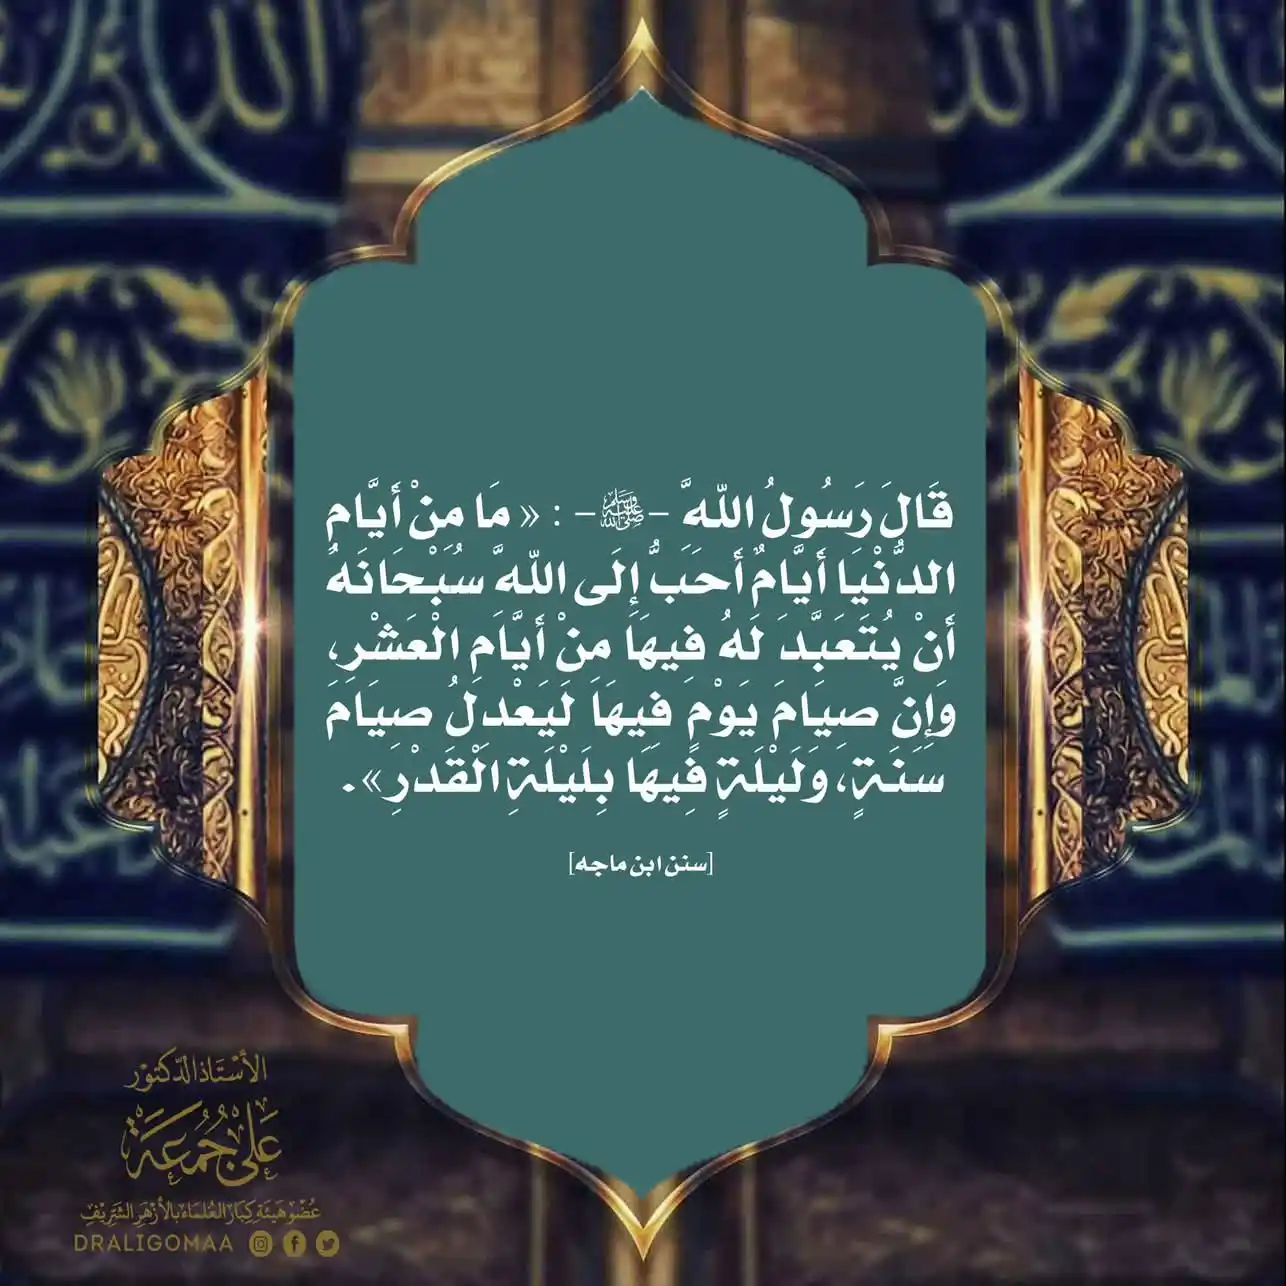 قَالَ رَسُولُ اللَّهِ -ﷺ- : « مَا مِنْ أَيَّامِ
الدُّنْيَا أَيَّامٌ أَحَبُّ إِلَى اللَّهِ سُبْحَانَهُ
أَنْ يُتَعَبَّدَ لَهُ فِيهَا مِنْ أَيَّامِ الْعَشْرِ،
وَإِنَّ صِيَامَ يَوْمٍ فِيهَا لَيَعْدِلُ صِيَامَ
سَنَةٍ، وَلَيْلَةٍ فِيهَا بِلَيْلَةِ الْقَدْرِ».
[سنن ابن ماجه]
الأستاذ الدكتور
علي جمعة
عضو هيئة كبار العلماء بالأزهر الشريف
DRALIGOMAA